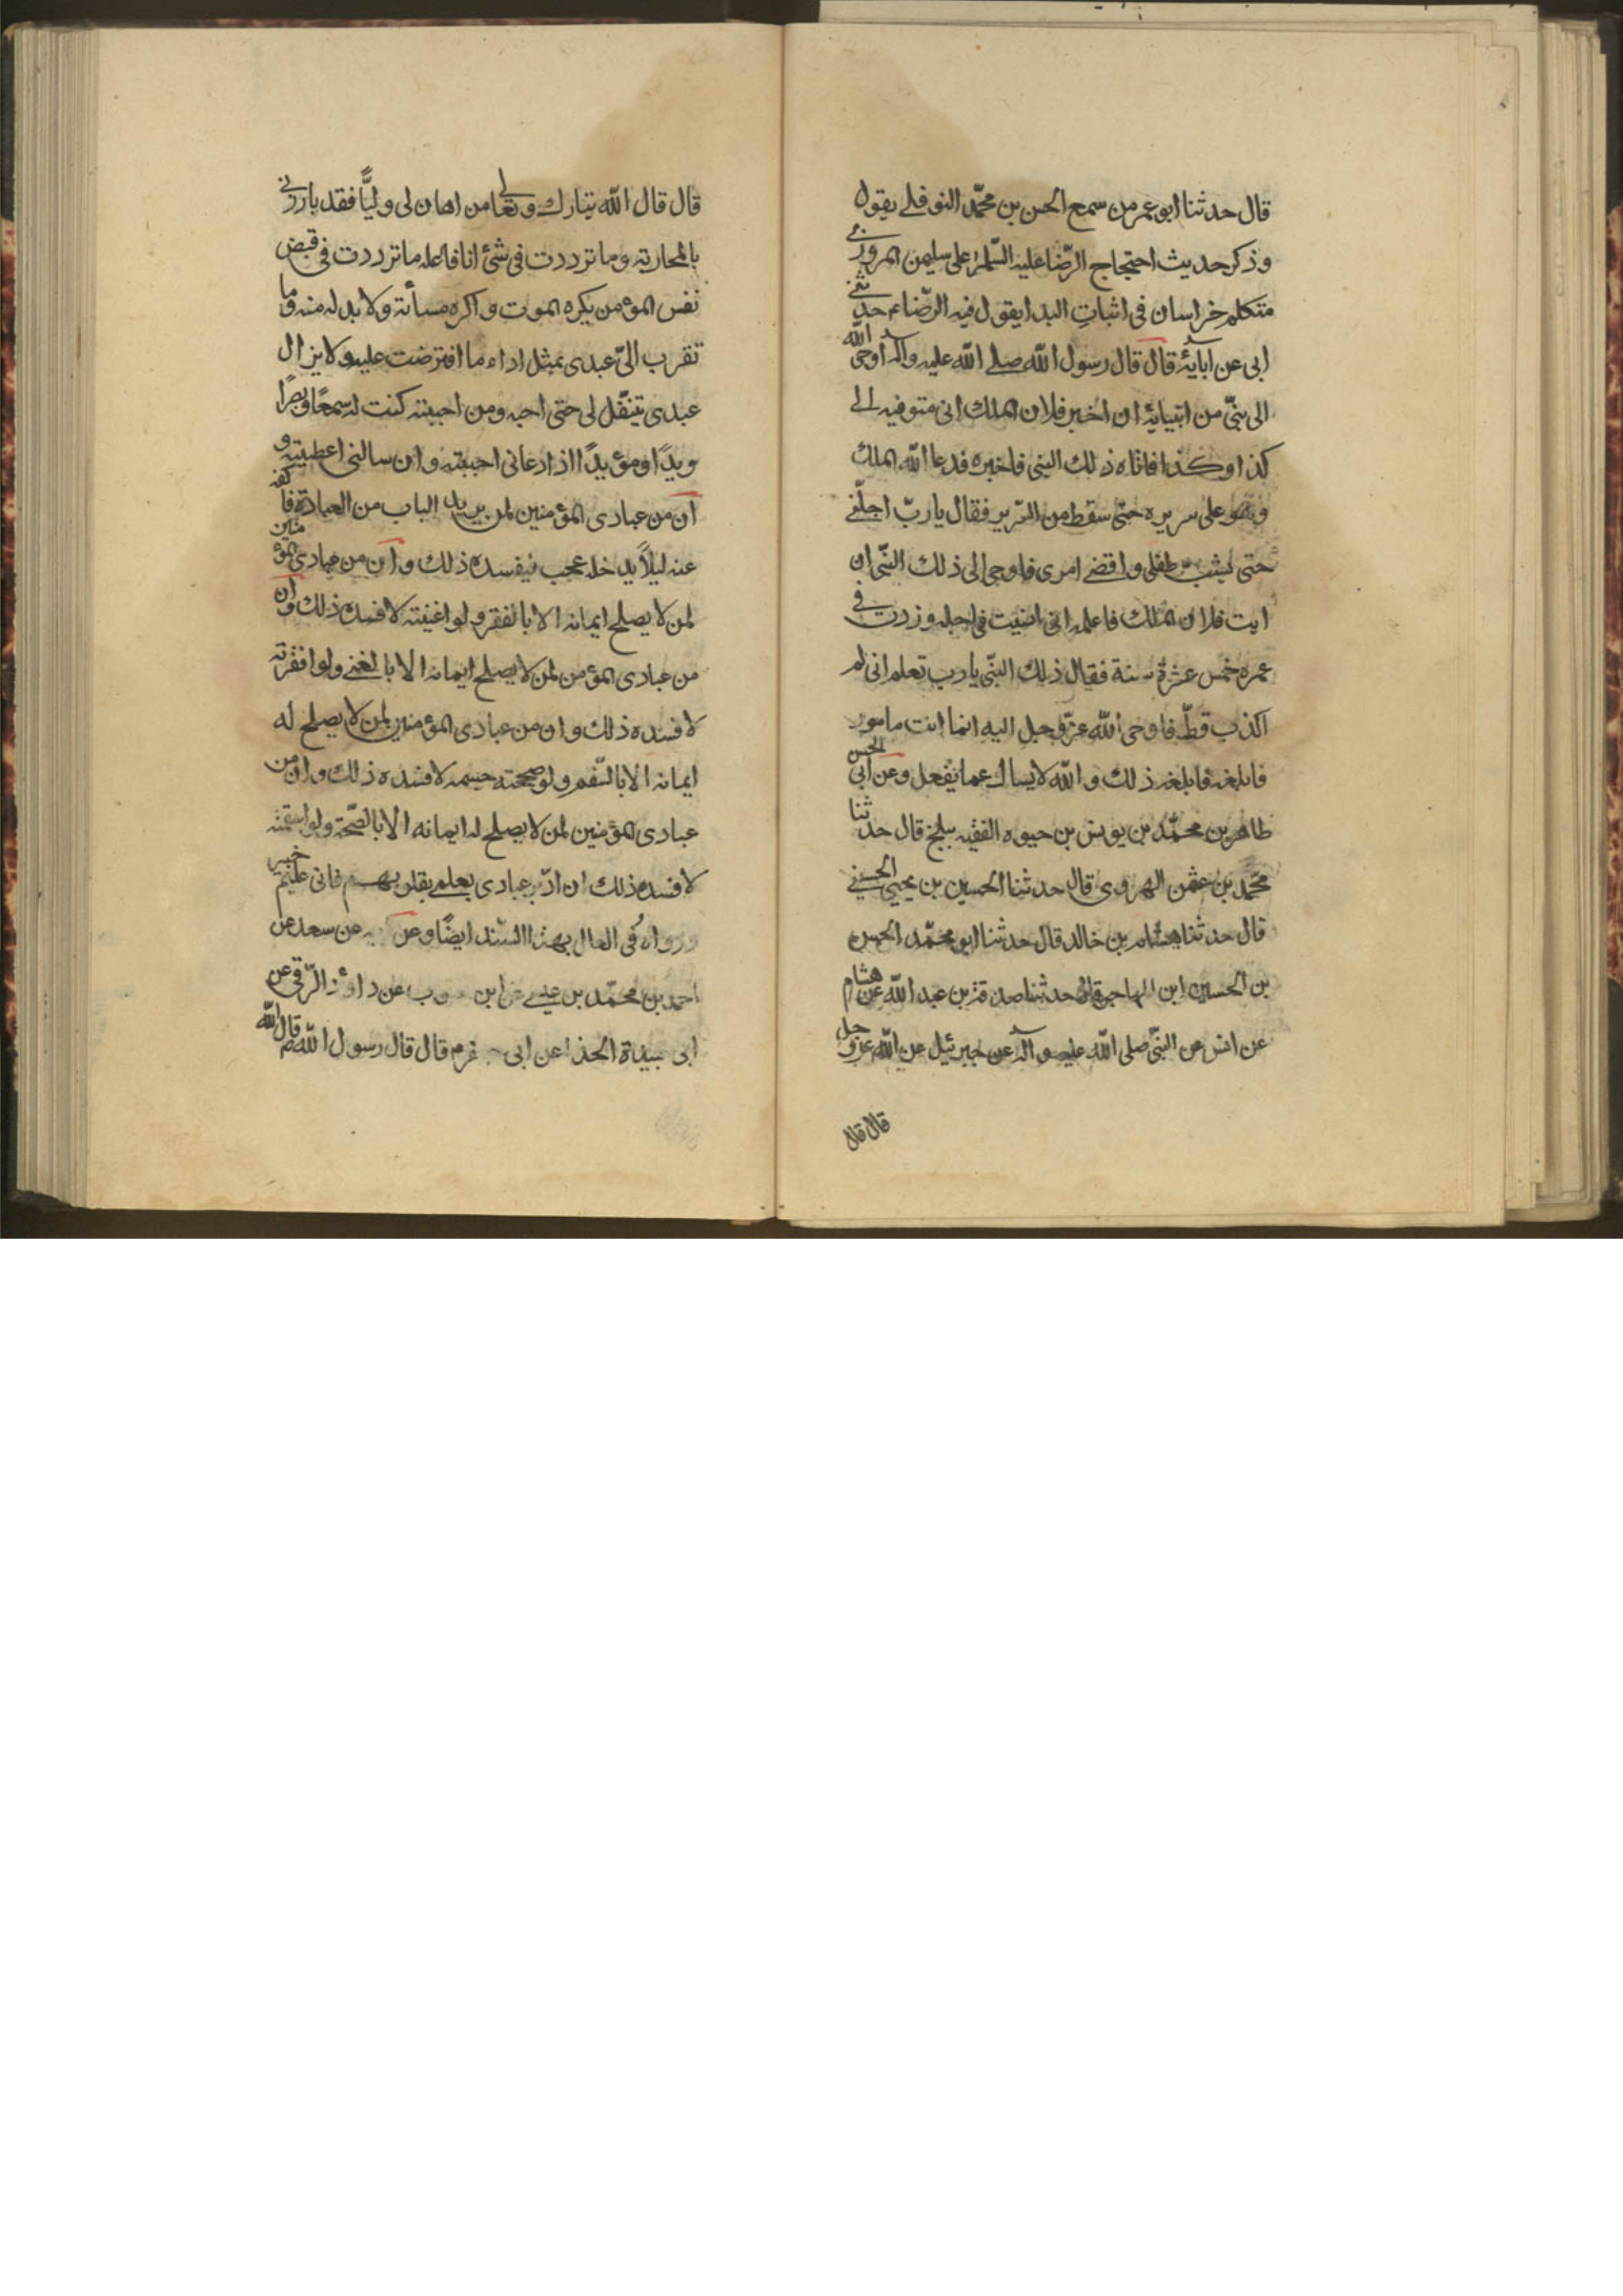 قال حدثنا ابو عمر من سمع الحسن بن محمّد النوفلے يقول
وذكر حديث احتجاج الرّضا عليه السّلم على سليمن المروزي
متكلم خراسان فى اثباتِ البدا يقول فيه الرّضاء حدثنى
ابى عن ابايهٔ قال قال رسول الله صلے الله عليه واله اوحى الله
الى نبىّ من انبيايهٔ ان اخبر فلان الملك انى متوفيه الى
كذا وكذا فاتاه ذلك النبى فاخبره فدعا الله الملك
وهو على سريره حتى سقط من السّرير فقال يا ربّ اجلّنے
حتى يشب طفلى واقضے امرى فاوحى الى ذلك النّبى ان
ايت فلان الملك فاعلمه انى انسيت فى اجله وزدت فى
عمره خمس عشرة سنة فقال ذلك النبّى يا رب تعلم انى لم
اكذب قطّ فاوحى الله عزّ وجل اليه انما انت مامور
فابلغه فابلغه ذلك والله لا يسال عما يفعل وعن ابى الحسن
طاهر بن محمّد بن يونس بن حيوه الفقيه ببلخ قال حدثنا
محمّد بن عثمن الهروى قال حدثنا الحسين بن يحيى الحسينى
قال حدثنا هشام بن خالد قال حدثنا ابو محمّد الحسن
بن الحسين ابن المهاجر قال حدثنا صدقة بن عبد الله عن هشام
عن انس عن النبّى صلى الله عليه واله عن جبرئيل عن الله عز وجل
قال قال
قال قال الله تبارك وتعالى من اهان لى وليًّا فقد بارزنى
بالمحاربة وما ترددت فى شئ انا فاعله ما ترددت فى قبض
نفس المؤمن يكره الموت واكره مسأته ولا بد له منه وما
تقرب الىّ عبدى بمثل اداء ما افترضت عليه ولا يزال
عبدى تنفّل لى حتى احبه ومن احببته كنت له سمعًا وبصرًا
ويدًا ومؤيدًا اذا دعانى احببته وان سالنى اعطيته و
ان من عبادى المؤمنين لمن يريد الباب من العبادة فاكفه
عنه ليلاً يدخله عجب فيفسده ذلك وان من عبادى المؤمنين
لمن لا يصلح ايمانه الا بالفقر ولو اغنيته لافسده ذلك وان
من عبادى المؤمن لمن لا يصلح ايمانه الا بالغنے ولو افقرته
لافسده ذلك وان من عبادى المؤمنين لمن لا يصلح له
ايمانه الا بالسّقم ولو صححته جسمه لافسده ذلك وان من
عبادى المؤمنين لمن لا يصلح له ايمانه الا بالصّحة ولو اسقمته
لافسده ذلك ان ادّبر عبادى بعلمے بقلوبهم فانى عليم خبير
ورواه فى العلل بهذا السّند ايضًا وعن عن سعد عن
احمد بن محمّد بن عيسے عن ابن عن داود الرّقى عن
ابى عبيدة الحذا عن ابى قال قال رسول الله ص قال الله